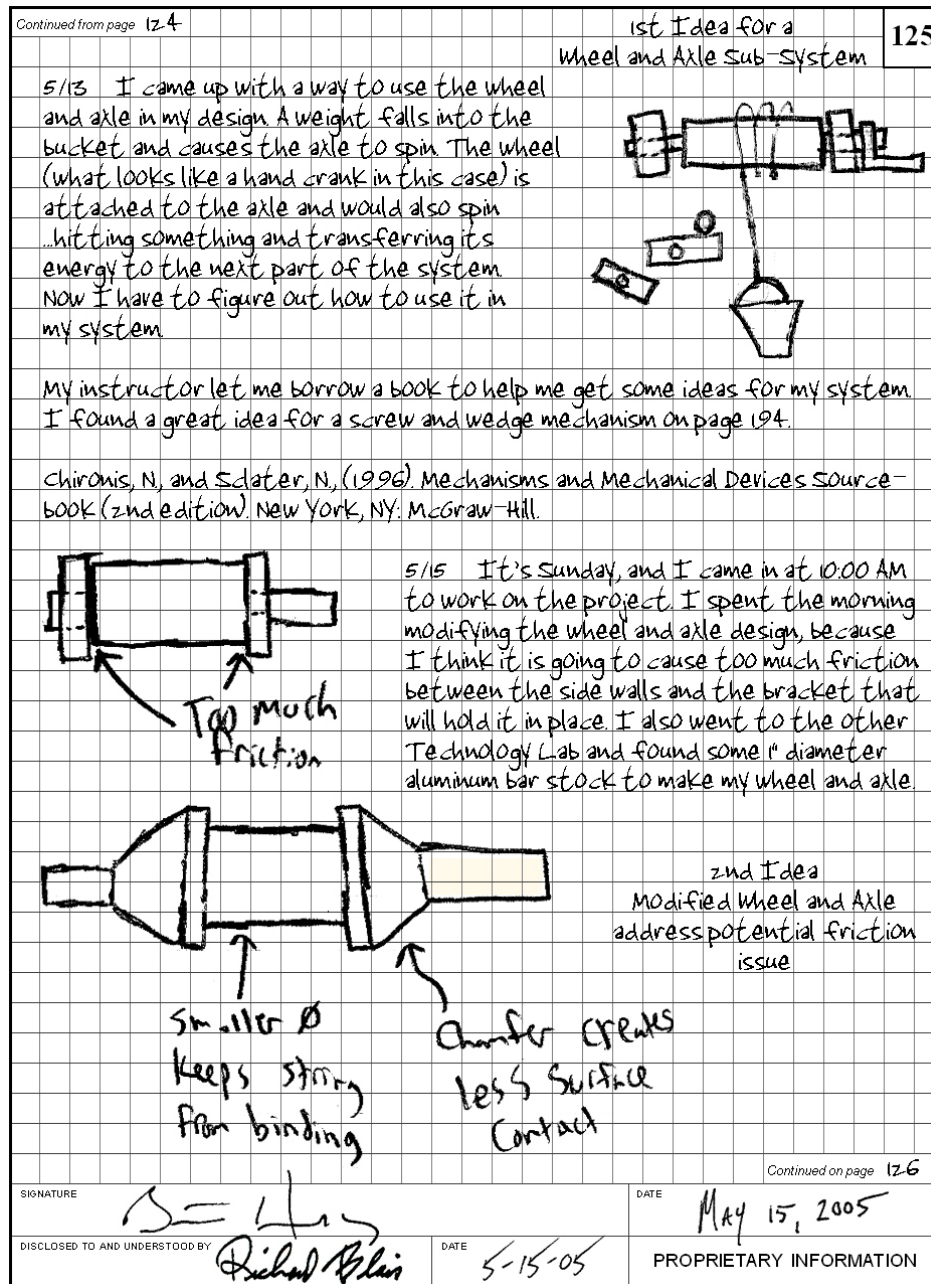 Continued from page 124
1st Idea for a
Wheel and Axle Sub-System
125
5/13 I came up with a way to use the wheel
and axle in my design. A weight falls into the
bucket and causes the axle to spin. The wheel
(what looks like a hand crank in this case) is
attached to the axle and would also spin
...hitting something and transferring its
energy to the next part of the system.
Now I have to figure out how to use it in
my system.
My instructor let me borrow a book to help me get some ideas for my system.
I found a great idea for a screw and wedge mechanism on page 194.
Chironis, N., and Sclater, N., (1996). Mechanisms and Mechanical Devices Source-
book (2nd edition). New York, NY: McGraw-Hill.
5/15 It's Sunday, and I came in at 10:00 AM
to work on the project. I spent the morning
modifying the wheel and axle design, because
I think it is going to cause too much friction
between the side walls and the bracket that
will hold it in place. I also went to the other
Technology Lab and found some 1" diameter
aluminum bar stock to make my wheel and axle.
Too much
friction
2nd Idea
Modified Wheel and Axle
address potential friction
issue
Smaller Ø
keeps string
from binding
Chamfer creates
less surface
contact
Continued on page 126
SIGNATURE
DATE
May 15, 2005
DISCLOSED TO AND UNDERSTOOD BY
Richard Blais
DATE
5-15-05
PROPRIETARY INFORMATION